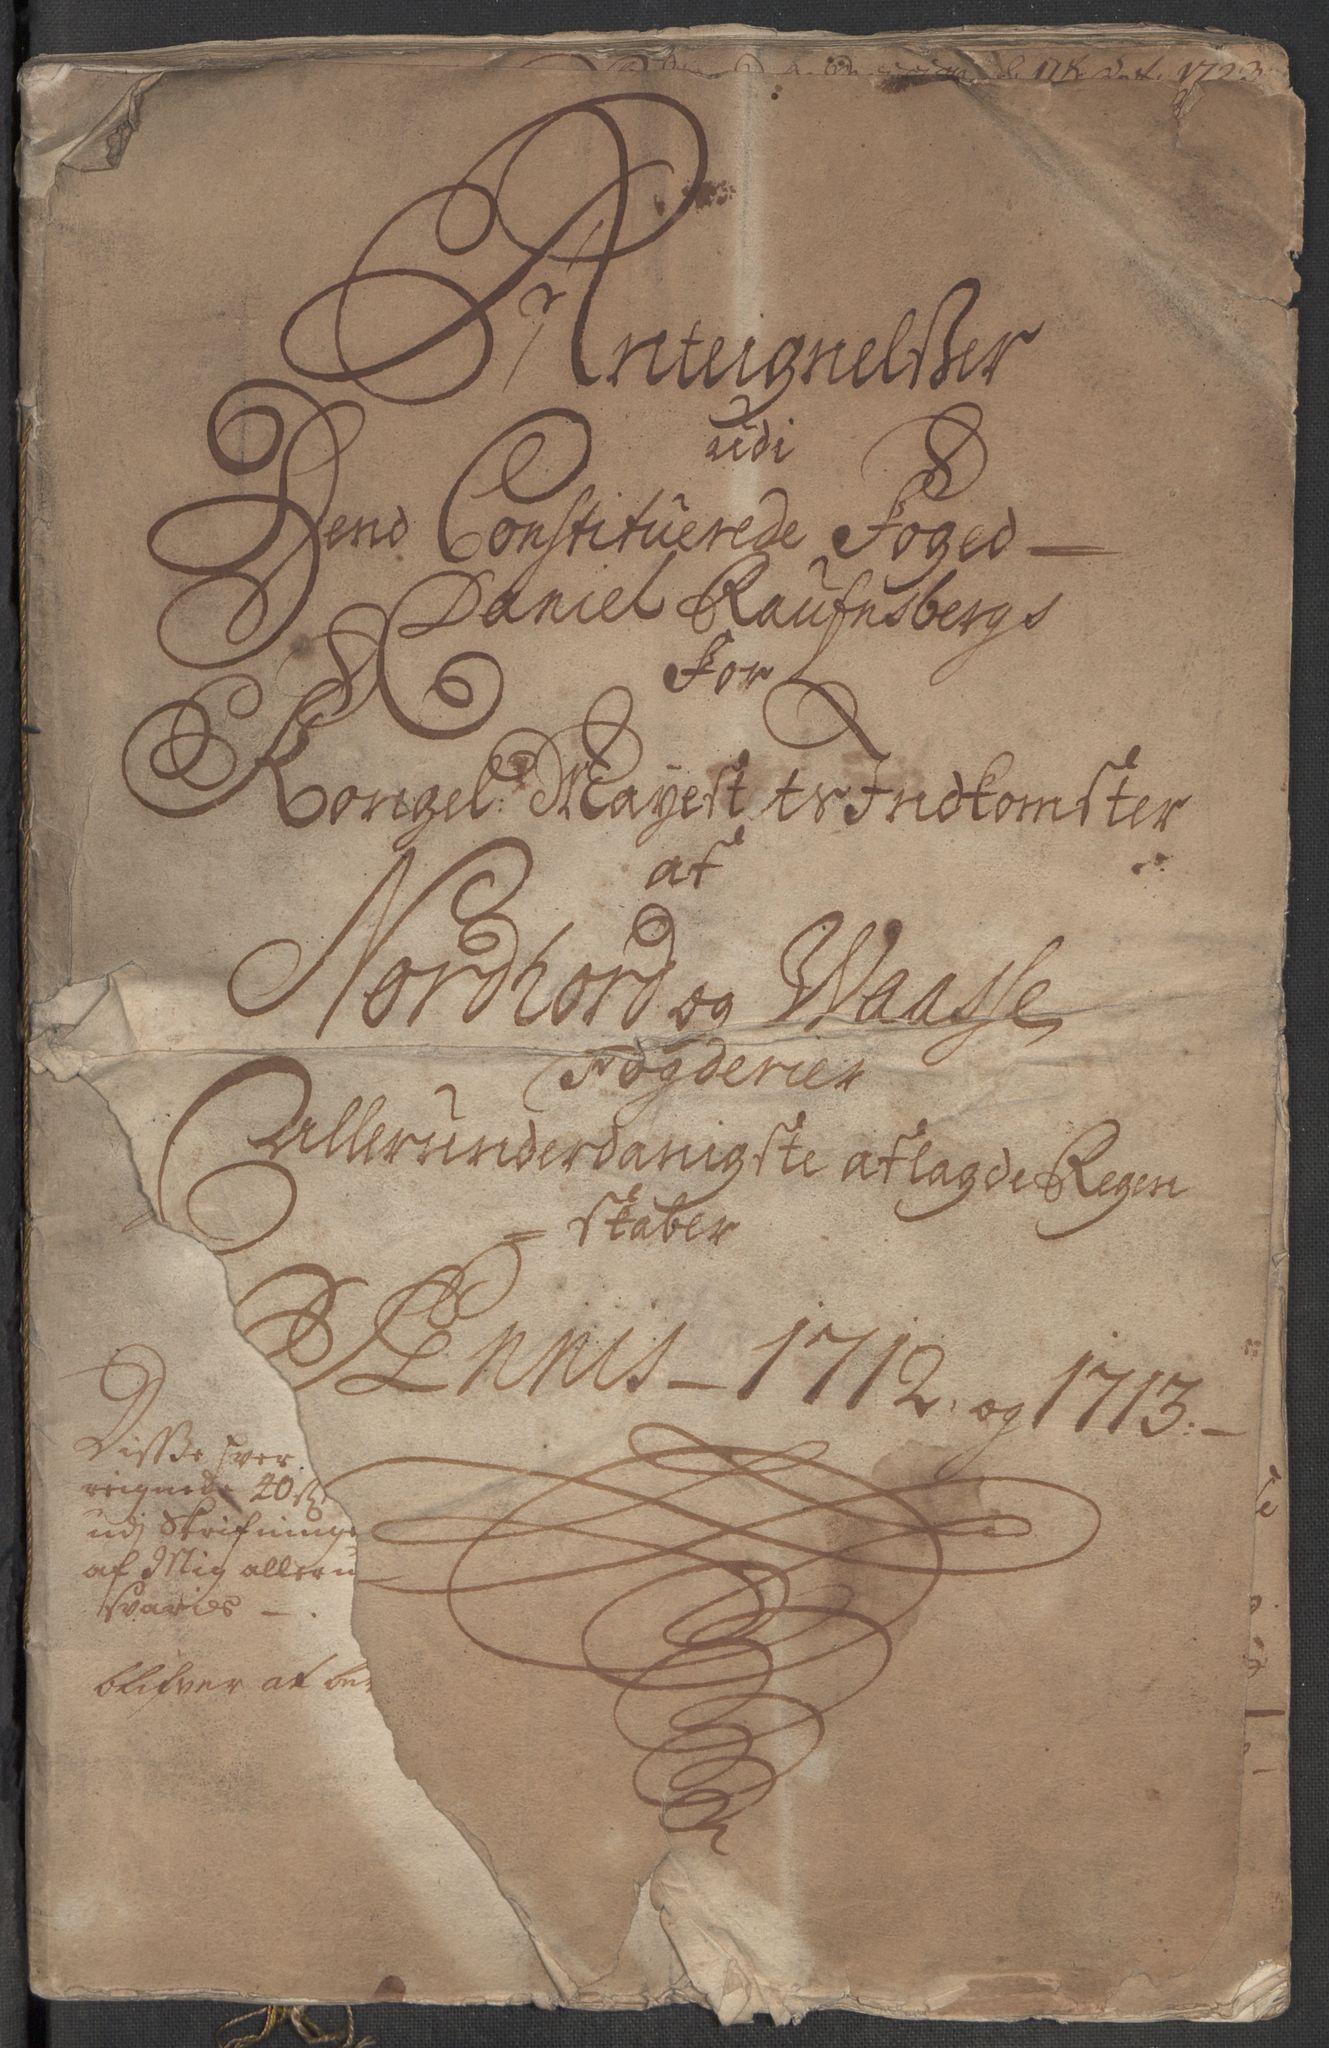 1723
Anteignelsser
udi
Dend Constituerede Foged —
Daniel Raufnsbergs
For
Kongel: Mayestts Indkomster
af
Nordhord og Waasse
Fogderier
Allerunderdanigste aflagde Regen
= skaber
Pro Annis — 1712. og 1713. —
Disse
reignede 20
udj Skrifninge
af Mig alleru
svaries — .
blifver at